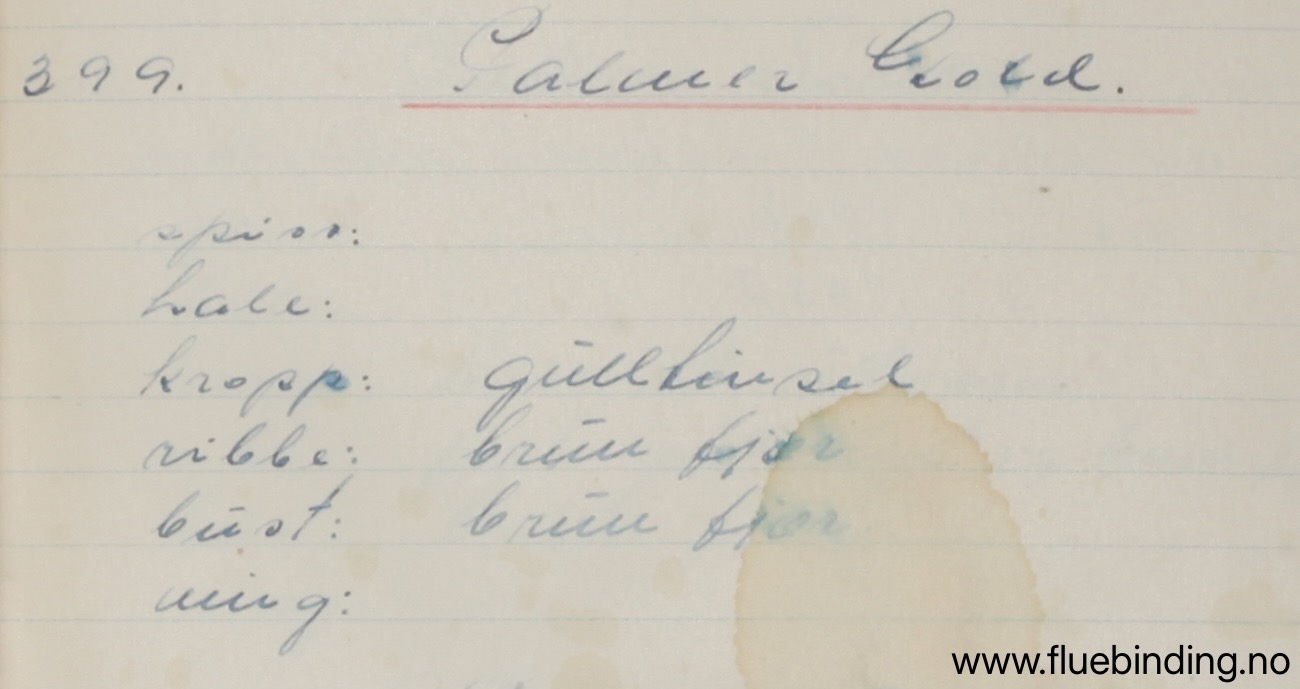 399. Palmer Gold.
spiss:
hale:
kropp: gulltinsel
ribbe: brun fjær
bust: brun fjær
ving:
www.fluebinding.no